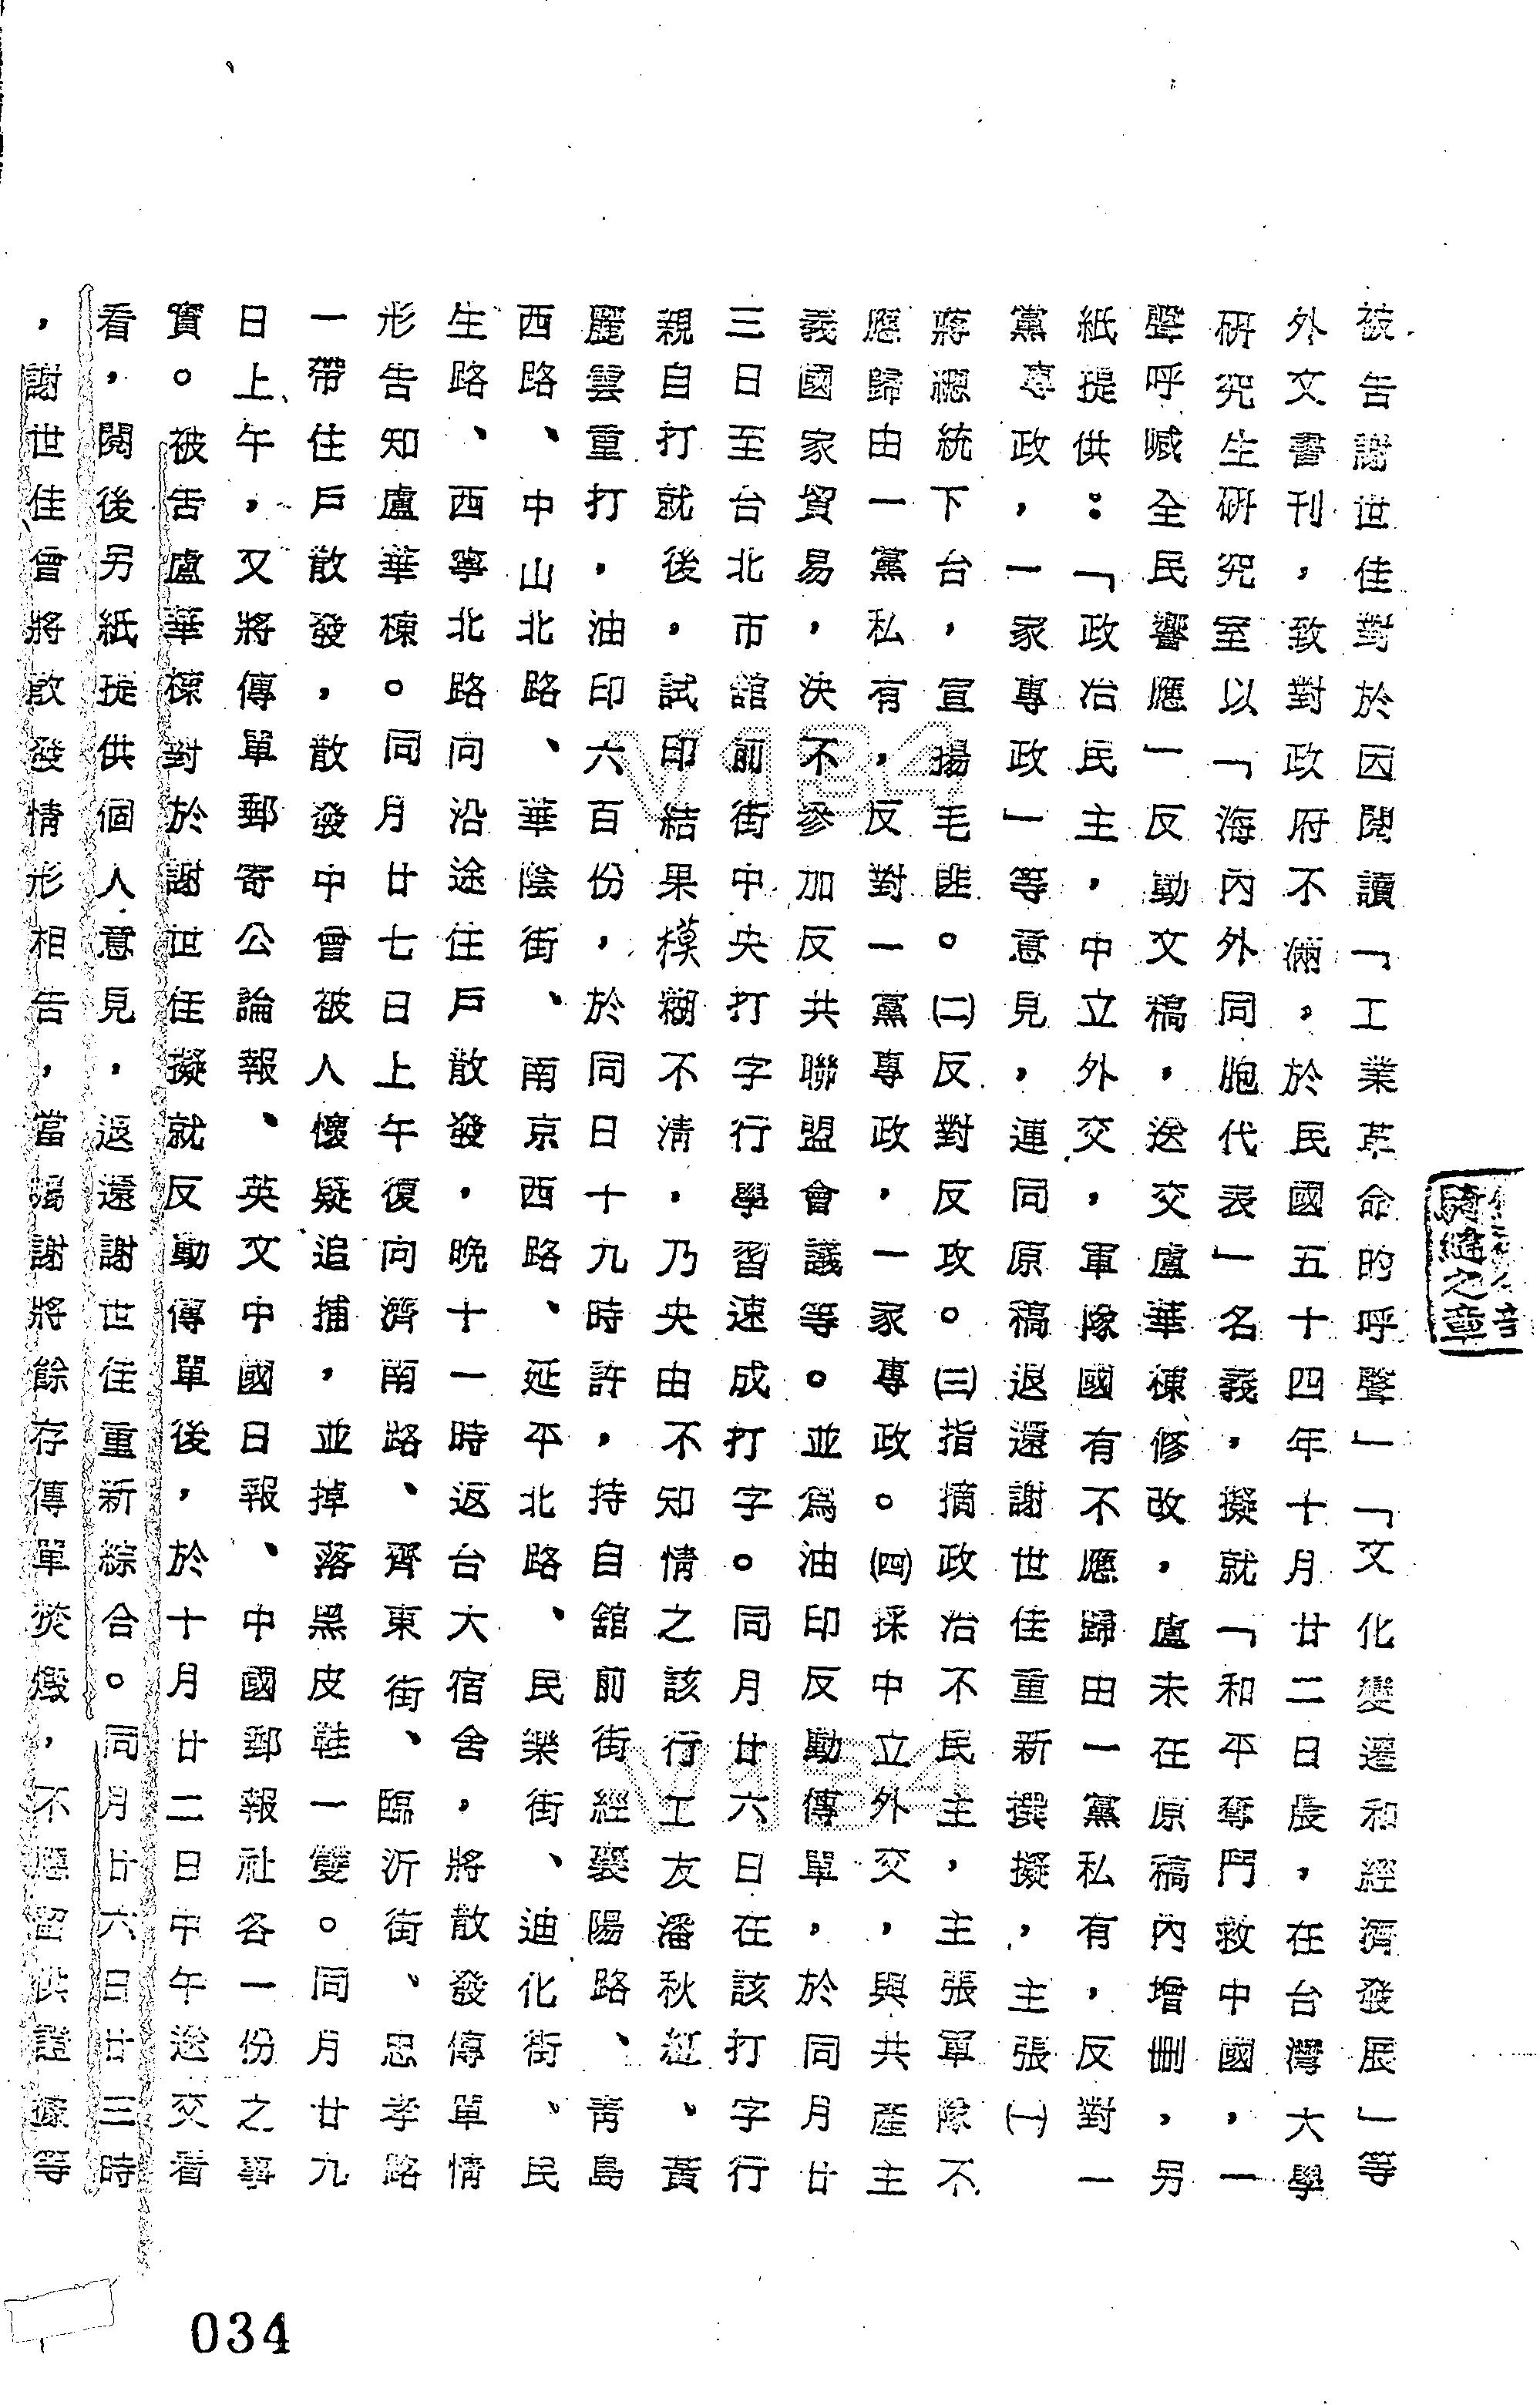 被告謝世佳對於因閱讀「工業革命的呼聲」「文化變遷和經濟發展」等
外文書刊，致對政府不滿，於民國五十四年十月廿二日晨，在台灣大學
研究生研究室以「海內外同胞代表」名義，擬就「和平奪鬥救中國，一
聲呼喊全民響應」反動文稿，送交盧華棟修改，盧未在原稿內增刪，另
紙提供：「政治民主，中立外交，軍隊國有不應歸由一黨私有，反對一
黨專政，一家專政」等意見，連同原稿退還謝世佳重新撰擬，主張㈠
蔣總統下台，宣揚毛匪。㈡反對反攻。㈢指摘政治不民主，主張軍隊不
應歸由一黨私有，反對一黨專政，一家專政。㈣採中立外交，與共產主
義國家貿易，決不參加反共聯盟會議等。並為油印反動傳單，於同月廿
三日至台北市舘前街中央打字行學習速成打字。同月廿六日在該打字行
親自打就後，試印結果模糊不清，乃央由不知情之該行工友潘秋紅、黃
麗雲重打，油印六百份，於同日十九時許，持自舘前街經襄陽路、青島
西路、中山北路、華陰街、南京西路、延平北路、民樂街、迪化街、民
生路、西寧北路路向沿途住戶散發，晚十一時返台大宿舍，將散發傳單情
形告知盧華棟。同月廿七日上午復向濟南路、齊東街、臨沂街、忠孝路
一帶住戶散發，散發中曾被人懷疑追捕，並掉落黑皮鞋一雙。同月廿九
日上午，又將傳單郵寄公論報、英文中國日報、中國郵報社各一份之事
實。被告盧華棟對於謝世佳擬就反動傳單後，於十月廿二日中午送交看
看，閱後另紙提供個人意見，返還謝世佳重新綜合。同月廿六日廿三時
，謝世佳曾將散發情形相告，當囑謝將餘存傳單焚燬，不應留供證據等
騎縫之章
V184
V184
034